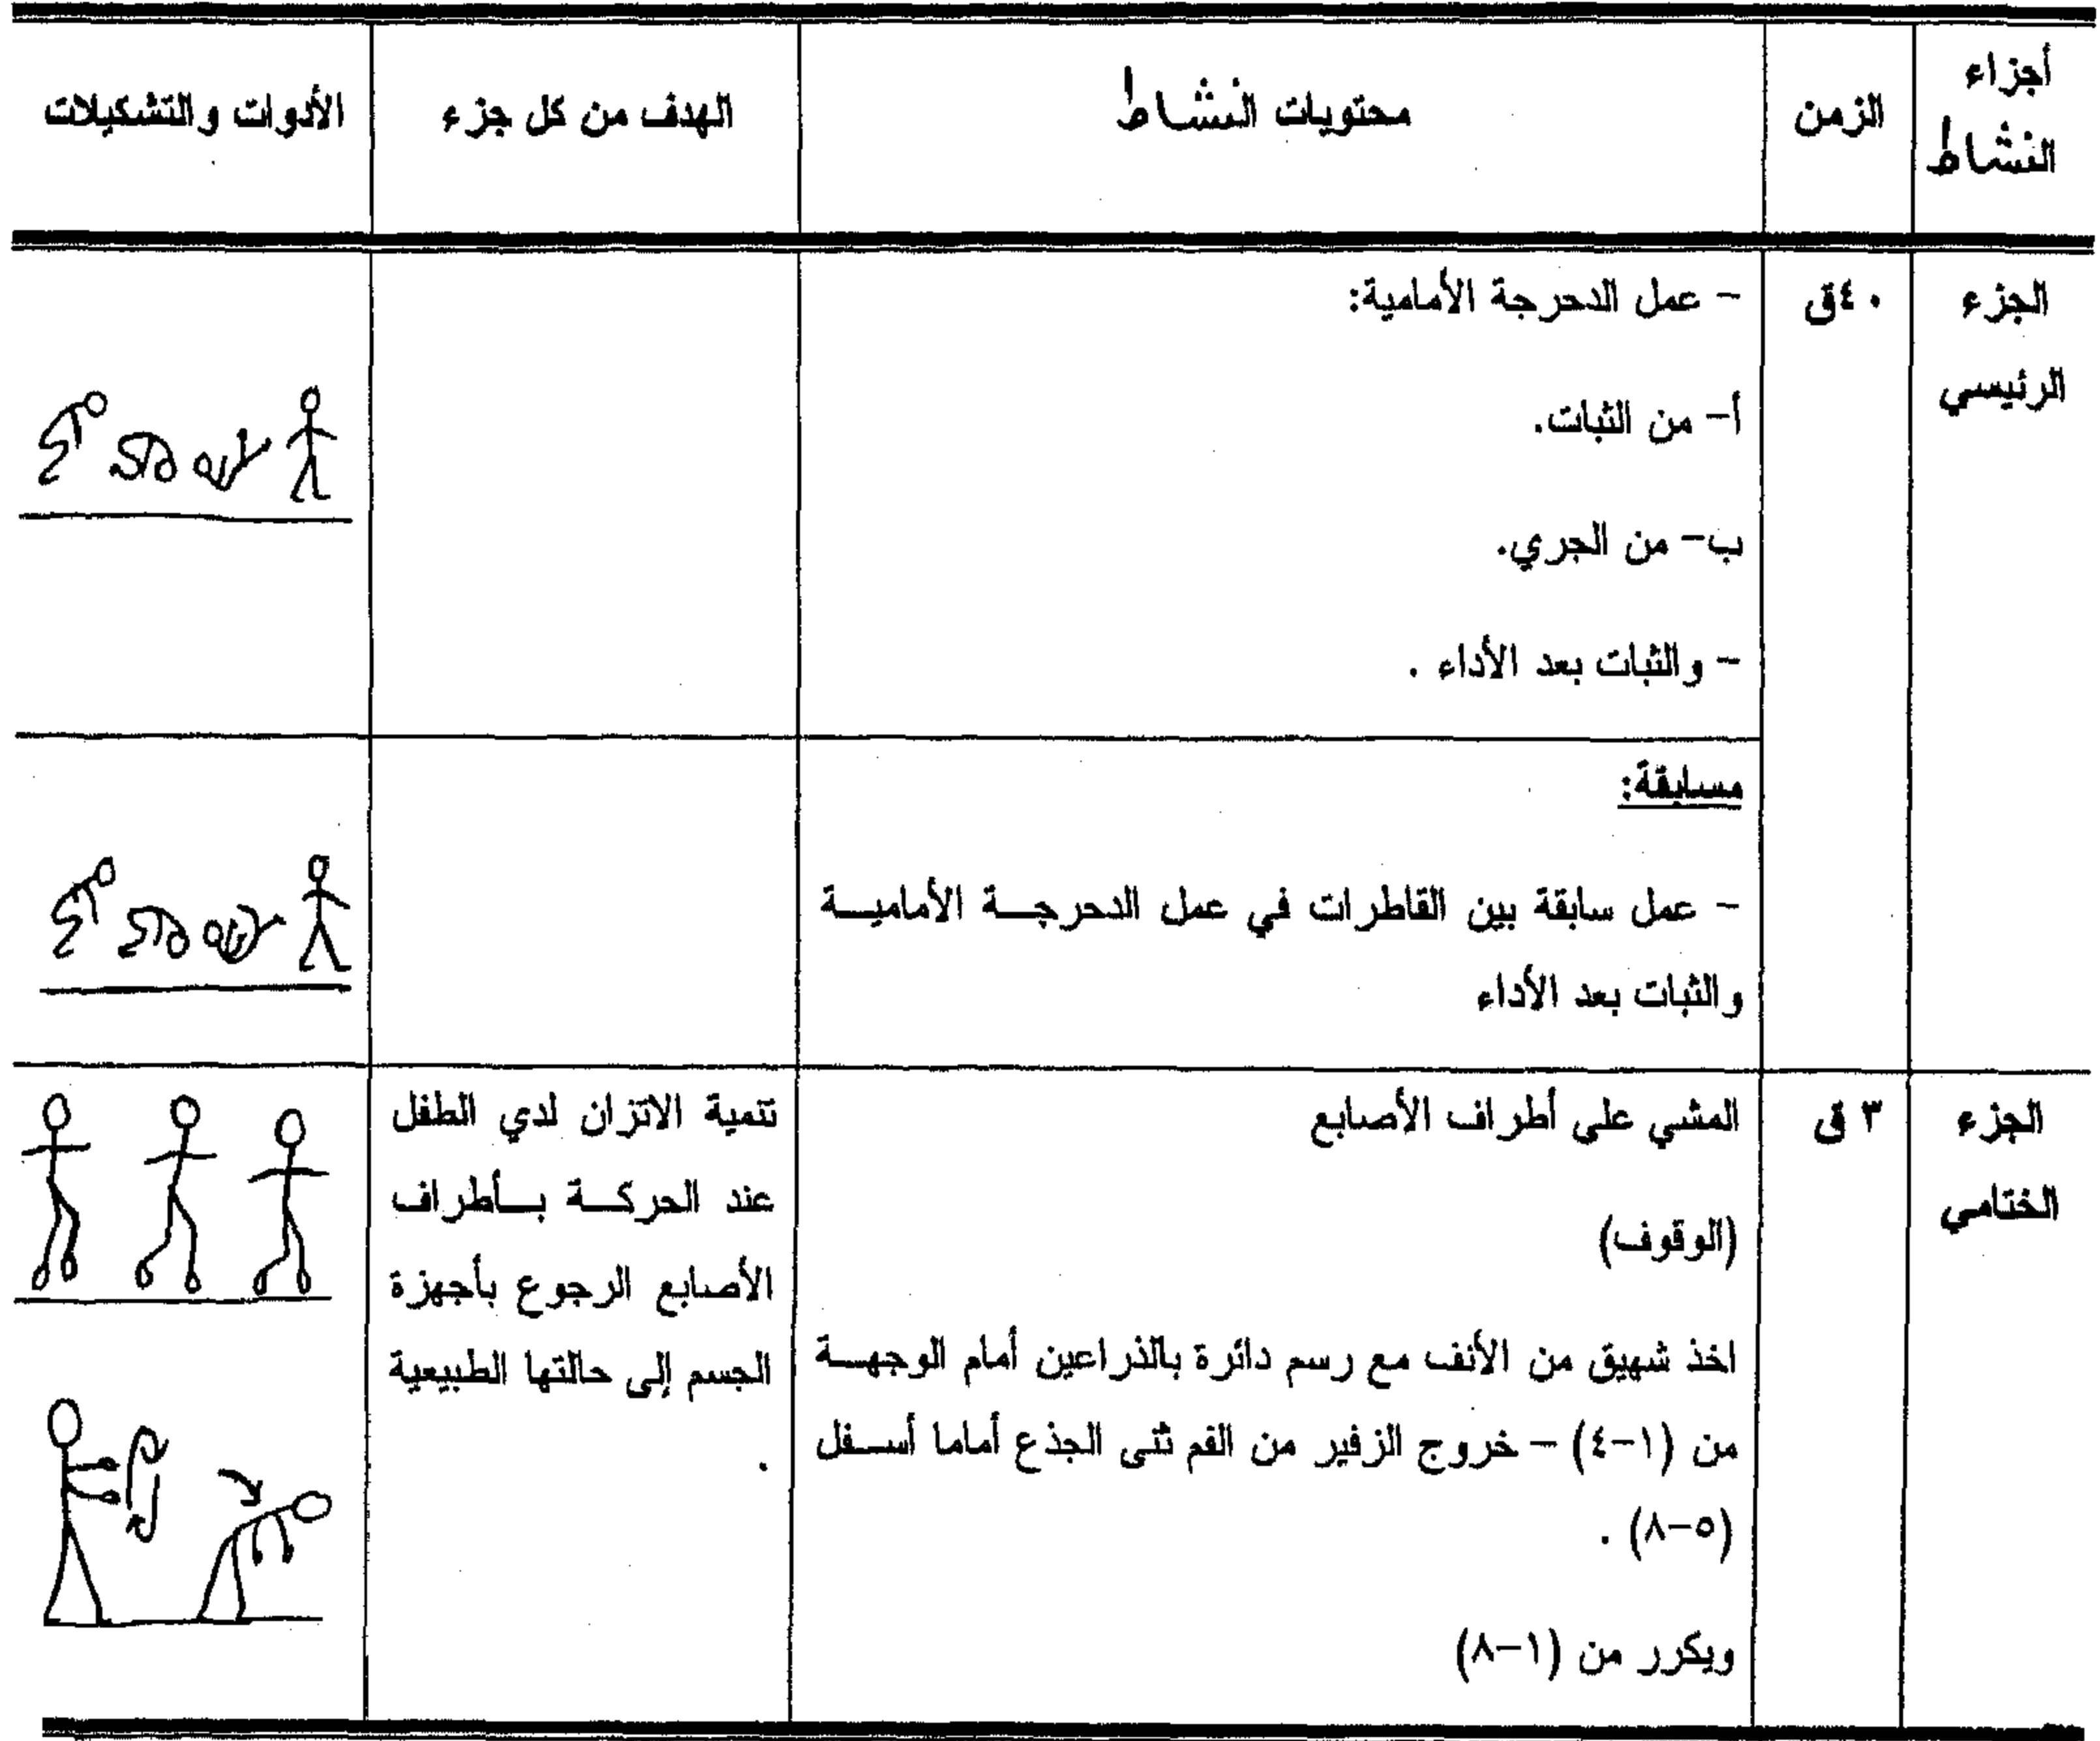 أجزاء
النشاط
الزمن
محتويات النشاط
الهدف من كل جزء
الأدوات والتشكيلات
الجزء
الرئيسي
٤٠ق
- عمل الدحرجة الأمامية:
أ- من الثبات.
ب- من الجري.
- والثبات بعد الأداء .
مسابقة:
- عمل سابقة بين القاطرات في عمل الدحرجة الأمامية
والثبات بعد الأداء
الجزء
الختامي
٣ ق
المشي على أطراف الأصابع
(الوقوف)
اخذ شهيق من الأنف مع رسم دائرة بالذراعين أمام الوجهة
من (١-٤) - خروج الزفير من الفم ثنى الجذع أماما أسفل
(٥-٨) .
ويكرر من (١-٨)
تنمية الاتزان لدي الطفل
عند الحركة بأطراف
الأصابع الرجوع بأجهزة
الجسم إلى حالتها الطبيعية
.